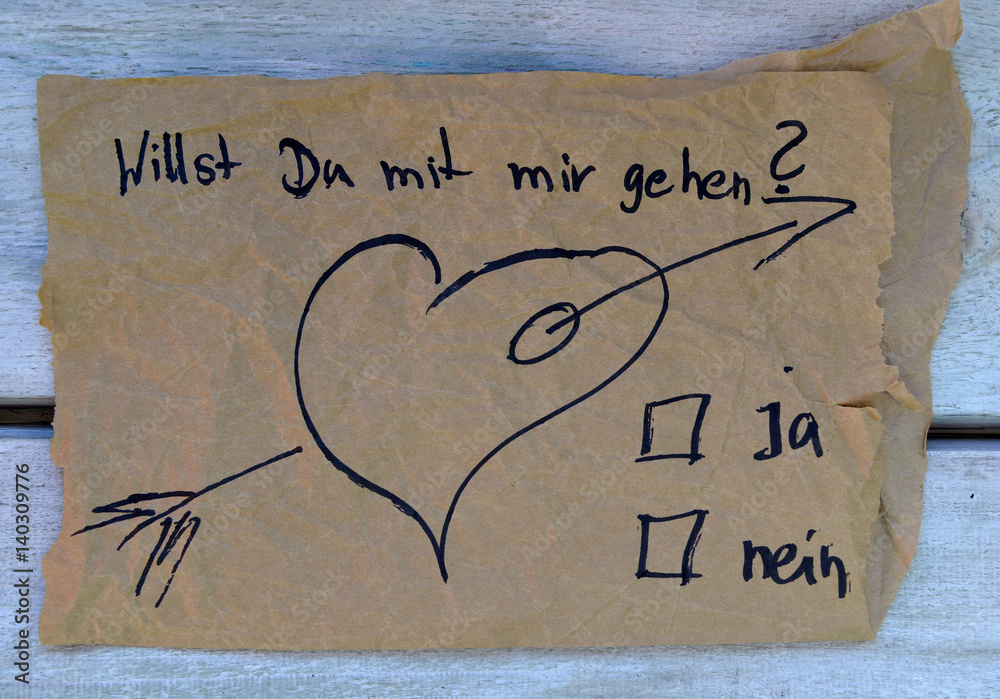 Willst Du mit mir gehen?
ja
nein
140309776
Adobe Stock